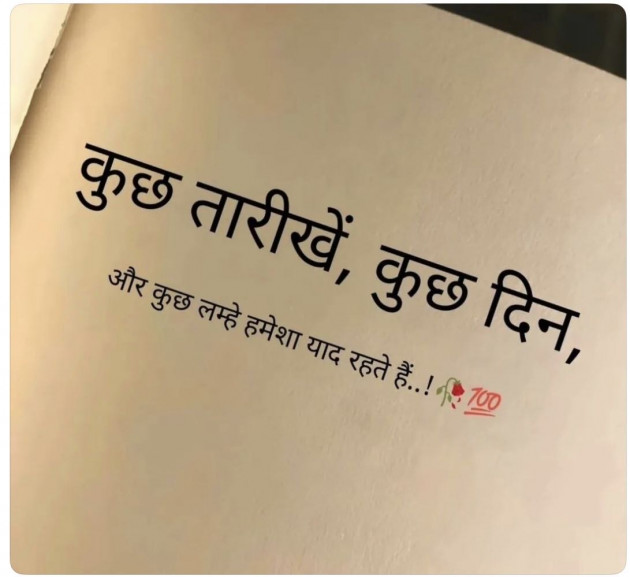 कुछ तारीखें, कुछ दिन,
और कुछ लम्हे हमेशा याद रहते हैं..!🥀💯